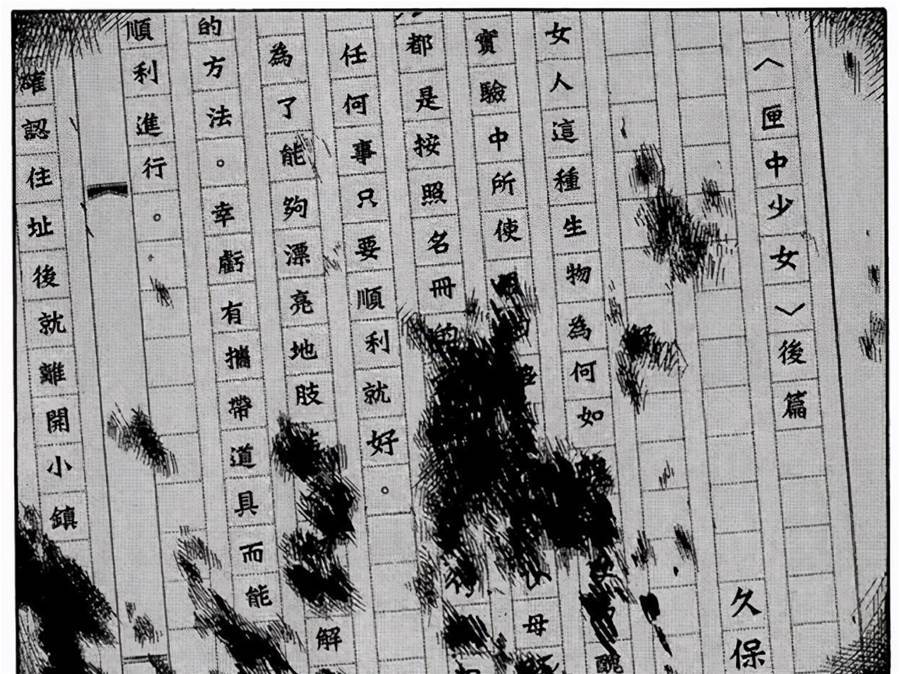 〈匣中少女〉後篇
久保
女人這種生物為何如
醜
實驗中所使
母
都是按照名冊的
任何事只要順利就好。
為了能夠漂亮地肢
解
的方法。幸虧有攜帶道具而能
順利進行。
確認住址後就離開小鎮